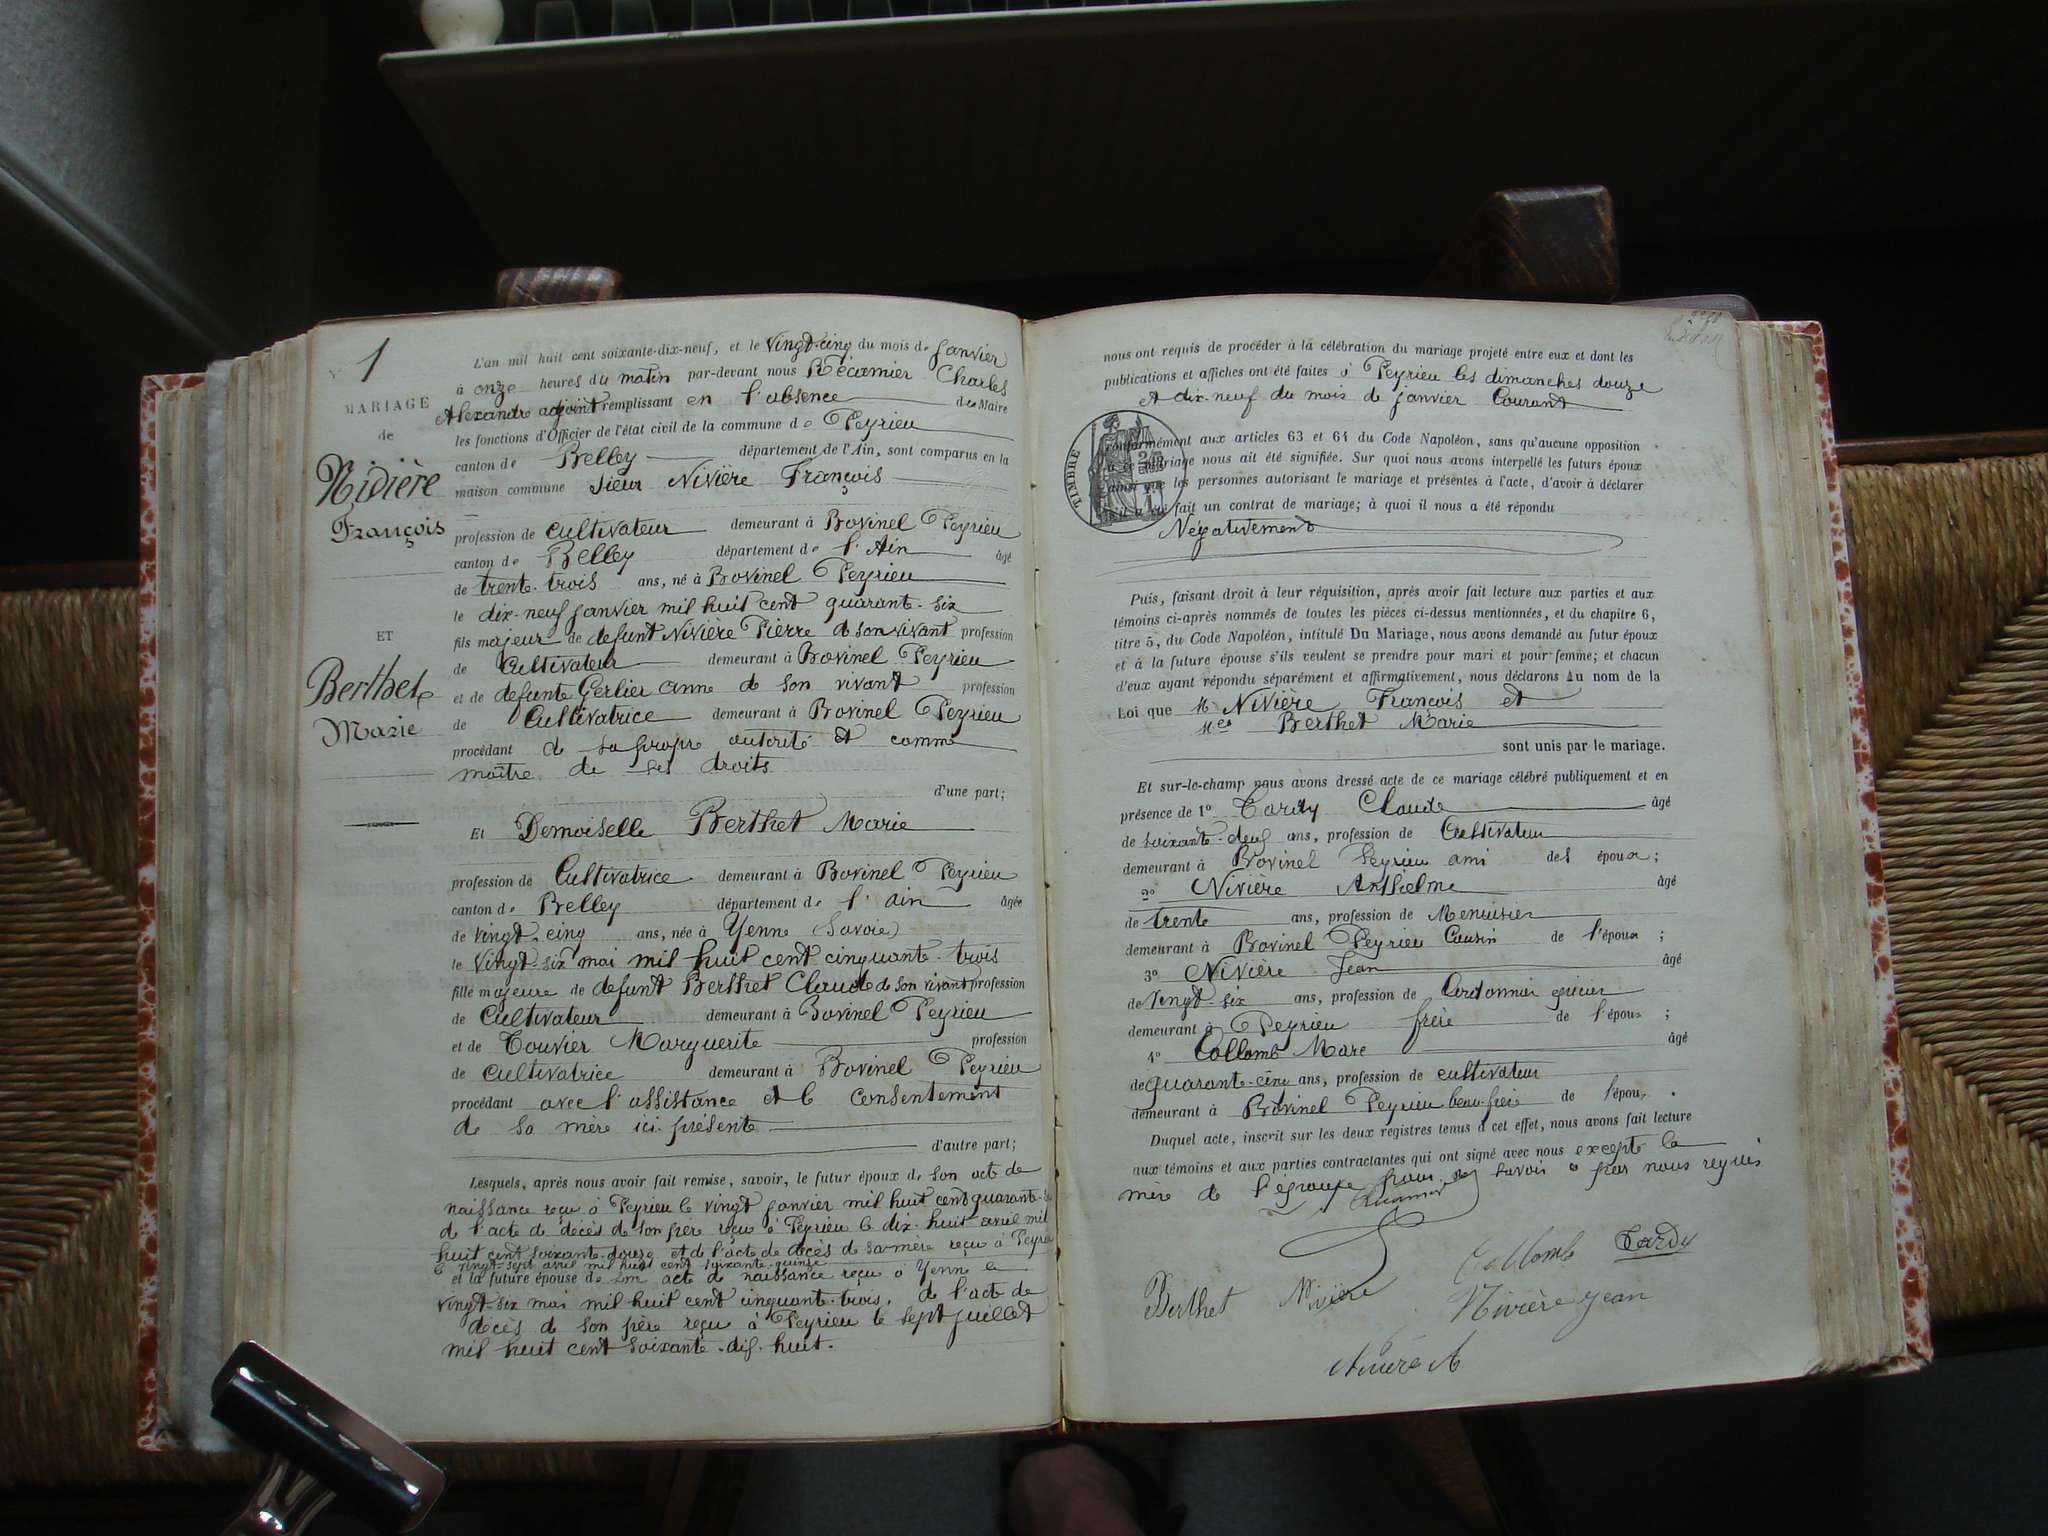 N° 1
MARIAGE
de
Nivière
François
ET
Berthet
Marie
L'an mil huit cent soixante-dix-neuf, et le vingt-cinq du mois de janvier
à onze heures du matin par-devant nous Récamier Charles
Alexandre adjoint remplissant en l'absence du Maire
les fonctions d'Officier de l'état civil de la commune de Peyrieu
canton de Belley département de l'Ain, sont comparus en la
maison commune sieur Nivière François
profession de cultivateur demeurant à Bovinel Peyrieu
canton de Belley département de l'Ain âgé
de trente-trois ans, né à Bovinel Peyrieu
le dix-neuf janvier mil huit cent quarante-six
fils majeur de défunt Nivière Pierre de son vivant profession
de Cultivateur demeurant à Bovinel Peyrieu
et de defunte Gerlier anne de son vivant profession
de Cultivatrice demeurant à Bovinel Peyrieu
procédant de sa propre autorité et comme
maître de ses droits
d'une part;
Et Demoiselle Berthet Marie
profession de Cultivatrice demeurant à Bovinel Peyrieu
canton de Belley département de l'ain âgée
de vingt-cinq ans, née à Yenne (Savoie)
le vingt-six mai mil huit cent cinquante-trois
fille majeure de defunt Berthet Claude de son vivant profession
de Cultivateur demeurant à Bovinel Peyrieu
et de Touvier Marguerite profession
de cultivatrice demeurant à Bovinel Peyrieu
procédant avec l'assistance et le consentement
de sa mère ici présente
d'autre part;
Lesquels, après nous avoir fait remise, savoir, le futur époux de son acte de
naissance reçu à Peyrieu le vingt janvier mil huit cent quarante-
de l'acte de décès de son père reçu à Peyrieu le dix-huit avril mil
huit cent soixante-douze et de l'acte de décès de sa mère reçu à Peyrieu
le vingt-sept avril mil huit cent soixante-quinze
et la future épouse de son acte de naissance reçu à Yenne le
vingt-six mai mil huit cent cinquante-trois, de l'acte de
décès de son père reçu à Peyrieu le sept juillet
mil huit cent soixante-dix-huit.
nous ont requis de procéder à la célébration du mariage projeté entre eux et dont les
publications et affiches ont été faites à Peyrieu les dimanches douze
et dix-neuf du mois de janvier Courant
TIMBRE
conformément aux articles 63 et 64 du Code Napoléon, sans qu'aucune opposition
à ce mariage nous ait été signifiée. Sur quoi nous avons interpellé les futurs époux
ainsi que les personnes autorisant le mariage et présentes à l'acte, d'avoir à déclarer
s'il a été fait un contrat de mariage; à quoi il nous a été répondu
Négativement
Puis, faisant droit à leur réquisition, après avoir fait lecture aux parties et aux
témoins ci-après nommés de toutes les pièces ci-dessus mentionnées, et du chapitre 6,
titre 5, du Code Napoléon, intitulé Du Mariage, nous avons demandé au futur époux
et à la future épouse s'ils veulent se prendre pour mari et pour femme; et chacun
d'eux ayant répondu séparément et affirmativement, nous déclarons Au nom de la
Loi que M. Nivière François et
Berthet Marie
sont unis par le mariage.
Et sur-le-champ nous avons dressé acte de ce mariage célébré publiquement et en
présence de 1° Tardy Claude âgé
de soixante-deux ans, profession de Cultivateur
demeurant à Bovinel Peyrieu ami des époux;
2° Nivière Anthelme âgé
de trente ans, profession de Menuisier
demeurant à Bovinel Peyrieu Cousin de l'époux;
3° Nivière Jean âgé
de vingt-six ans, profession de Cordonnier épicier
demeurant à Peyrieu frère de l'époux;
4° Collomb Marc âgé
de quarante-cinq ans, profession de cultivateur
demeurant à Bovinel Peyrieu beau-frère de l'époux.
Duquel acte, inscrit sur les deux registres tenus à cet effet, nous avons fait lecture
aux témoins et aux parties contractantes qui ont signé avec nous excepté la
mère de l'épouse pour ne savoir de par nous requis
Collomb Tardy
Berthet Nivière Nivière Jean
Nivière A